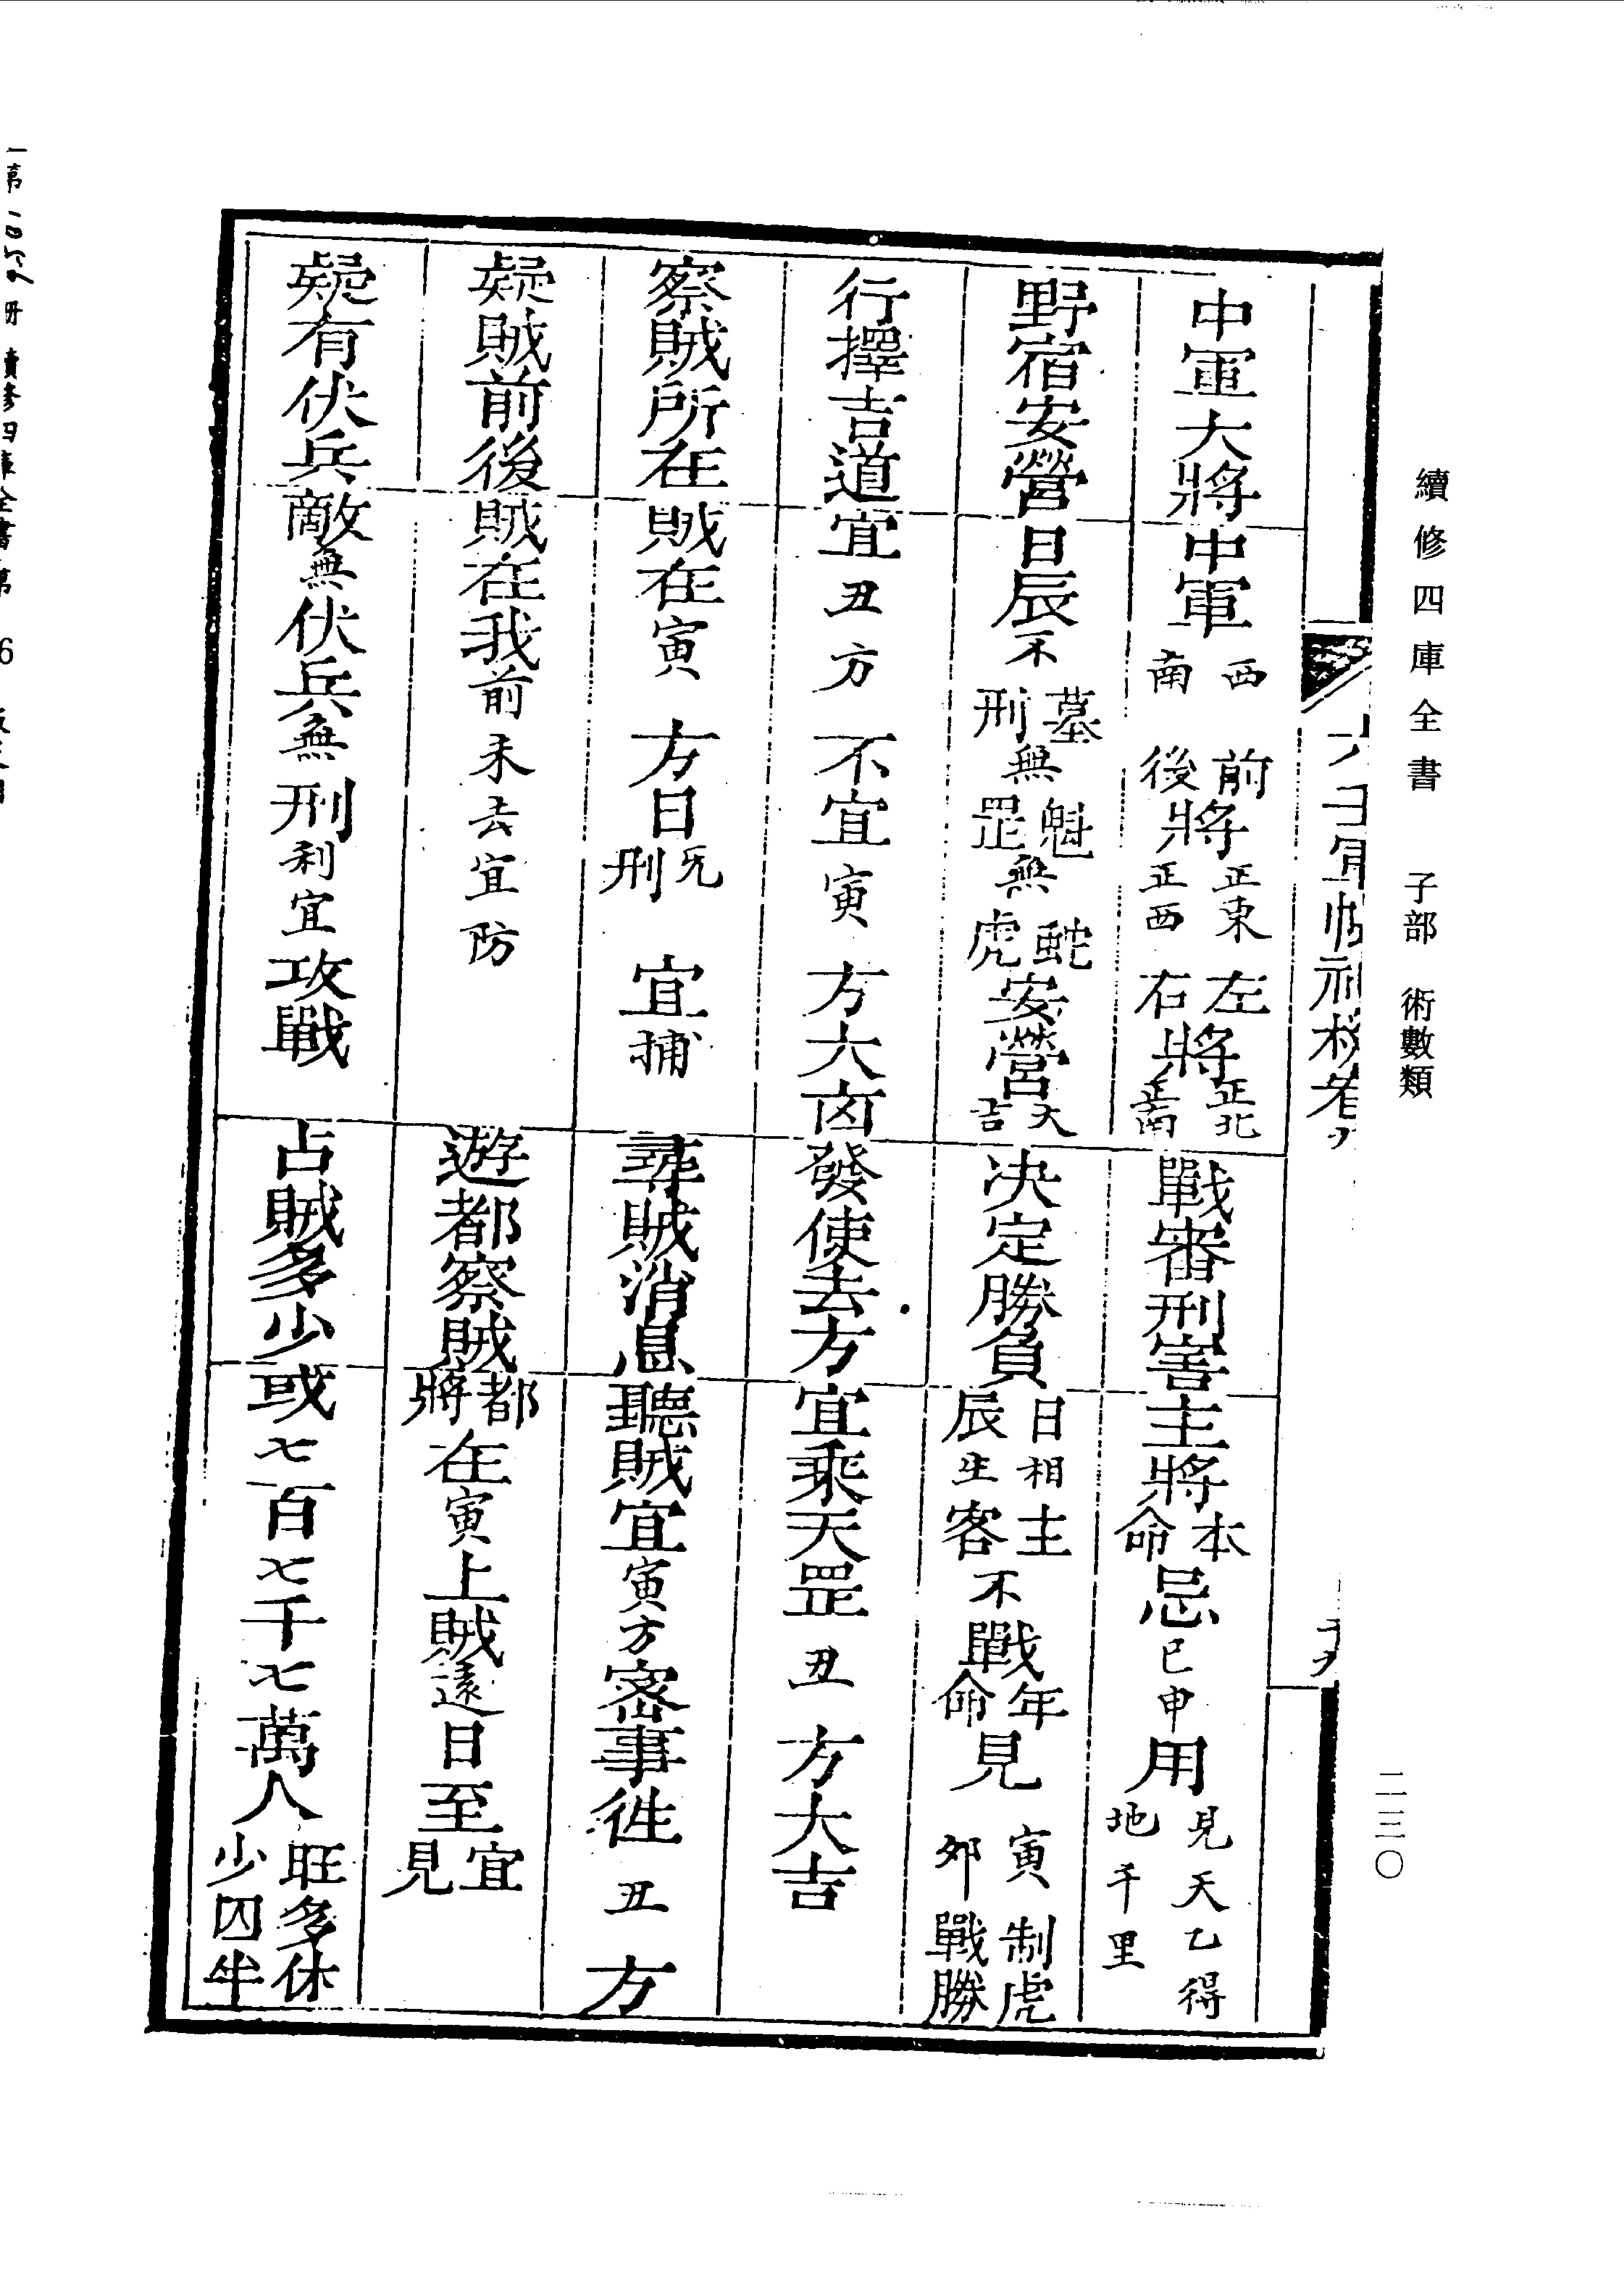 續修四庫全書 子部 術數類
二三〇
中軍大將 中軍西南 前後將正東正西 左右將正北正南 戰審刑害 主將本命忌巳申用見天乙得地千里
野宿安營 日辰不墓刑無魁罡無蛇虎安營大吉 決定勝負 日辰相生主客不戰年命見寅卯制虎戰勝
行擇吉道 宜丑方不宜寅方大凶 發使去方 宜乘天罡丑方大吉
察賊所在 賊在寅方日刑 宜捕 尋賊消息 聽賊宜寅方密事徃丑方
疑賊前後 賊在我前未去宜防 遊都察賊 都將在寅上賊遠日至宜見
疑有伏兵 敵無伏兵無刑利宜攻戰 占賊多少 或七百七千七萬人旺多休少囚半